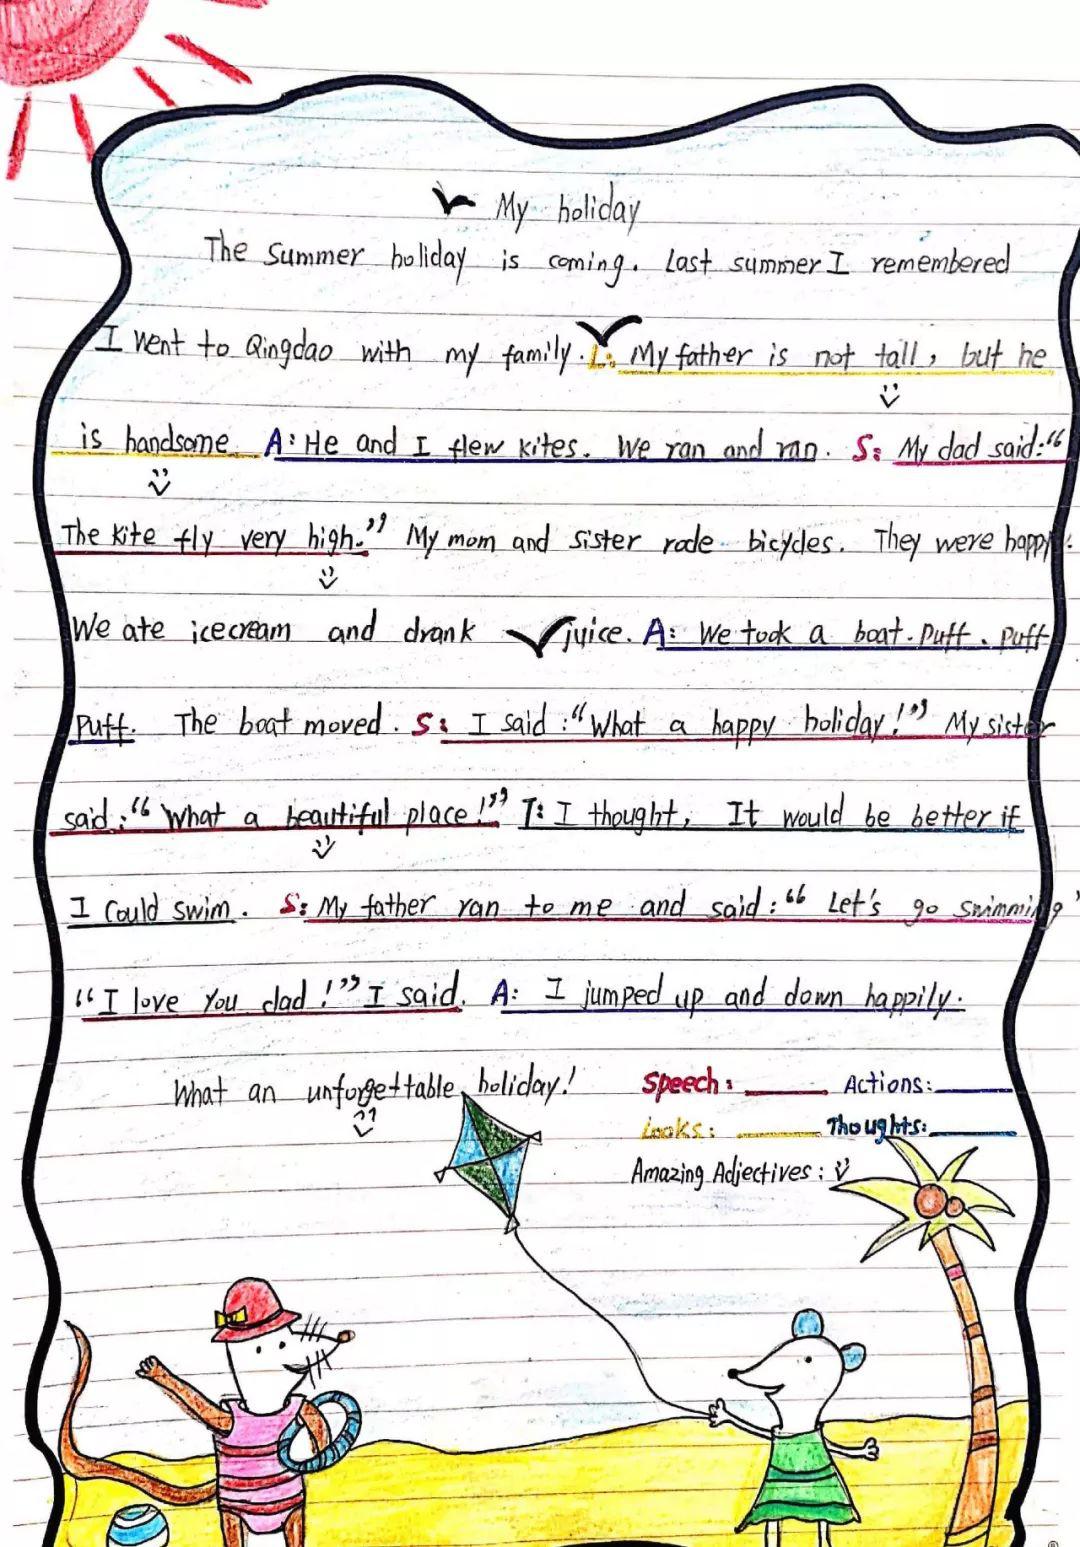 My holiday
The Summer holiday is coming. Last summer I remembered
I went to Qingdao with my family. L: My father is not tall, but he
is handsome. A: He and I flew kites. We ran and ran. S: My dad said:“
The kite fly very high.” My mom and sister rode bicycles. They were happy.
We ate icecream and drank juice. A: We took a boat. Puff. Puff
Puff. The boat moved. S: I said:“What a happy holiday!” My sister
said:“What a beautiful place!” T: I thought, It would be better if
I Could swim. S: My father ran to me and said:“ Let's go swimming”
“I love You dad!” I said. A: I jumped up and down happily.
What an unforgettable holiday!
Speech: Actions:
Looks: Thoughts:
Amazing Adjectives: